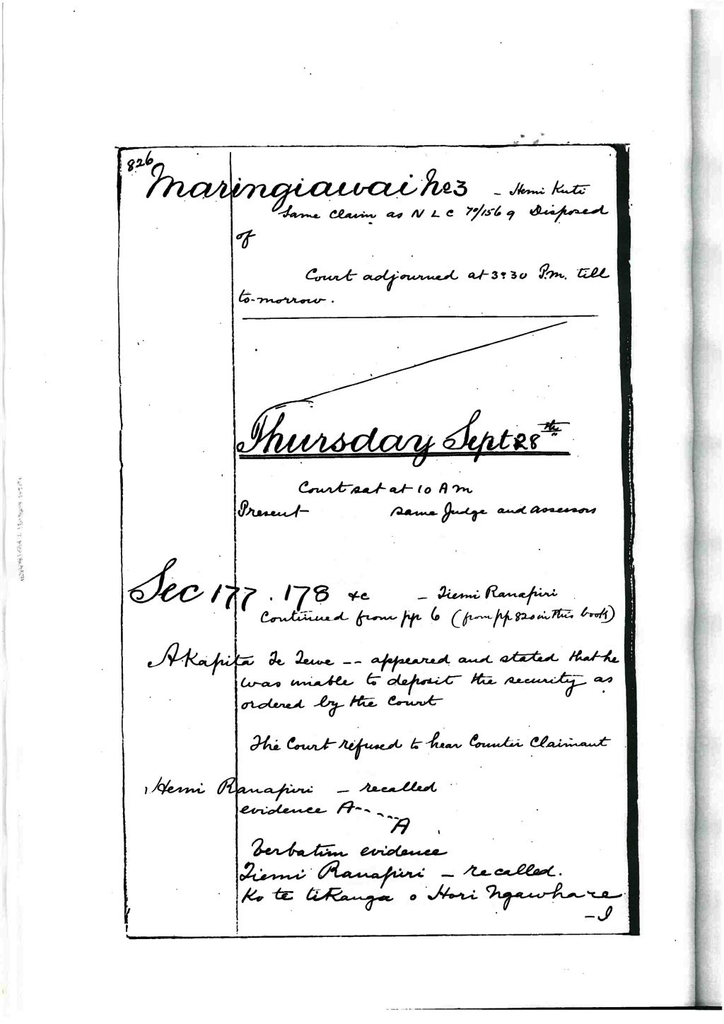 826
Maringiawai No 3 - Hemi Kuti
Same Claim as N L C 70/156 9 Disposed
of
Court adjourned at 3.30 P.m. till
to-morrow.
Thursday Sept 28th
Court sat at 10 A m
Present same Judge and assessors
Sec 177. 178 &c - Tiemi Ranapiri
Continued from pp 6 (from pp. 820 in this book)
Akapita Te Tewe -- appeared and stated that he
was unable to deposit the security as
ordered by the Court
The Court refused to hear Counter Claimant
Hemi Ranapiri - recalled
evidence A-----
A
Verbatim evidence
Tiemi Ranapiri - recalled.
Ko te tikanga o Hori Ngawhare